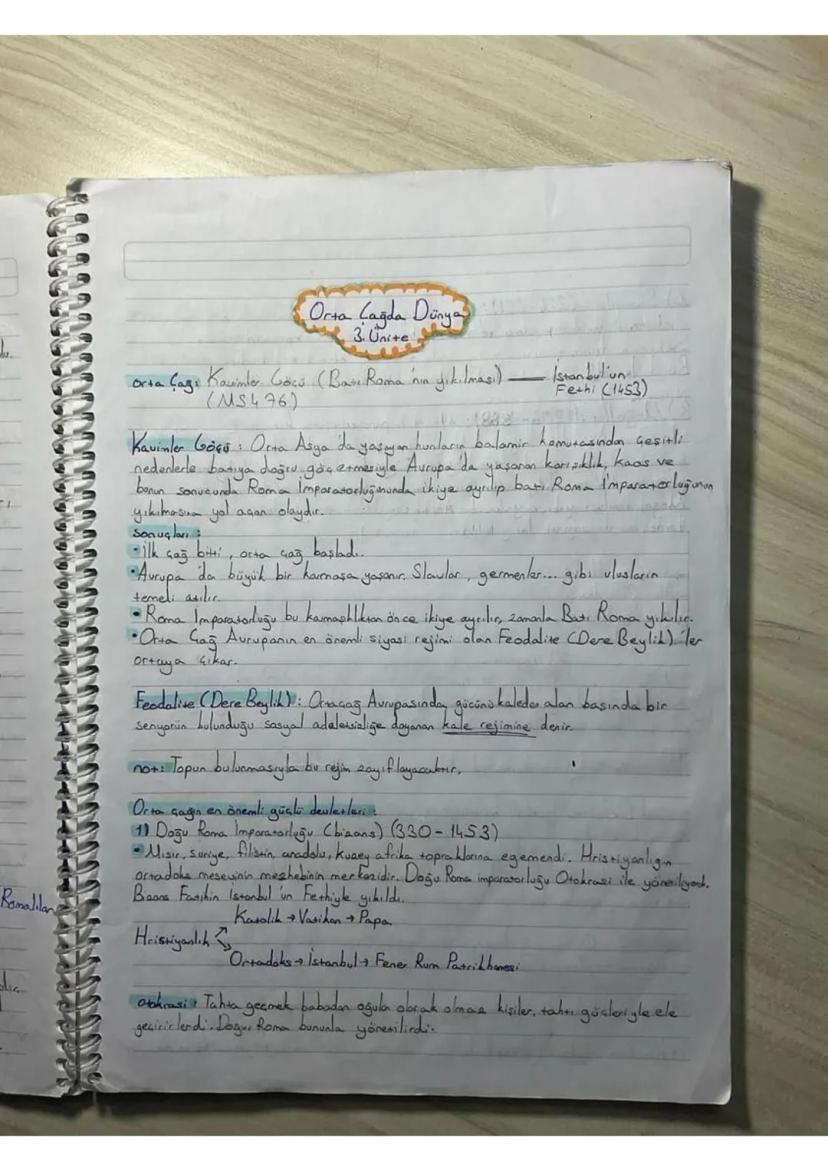 Orta Çağda Dünya
3. Ünite
Orta Çağ: Kavimler Göçü (Batı Roma'nın yıkılması) — İstanbul'un
(MS 476) Fethi (1453)
Kavimler Göçü: Orta Asya'da yaşayan hunların balamir komutasından çeşitli
nedenlerle batıya doğru göç etmesiyle Avrupa'da yaşanan karışıklık, kaos ve
bunun sonucunda Roma İmparatorluğununda ikiye ayrılıp batı Roma İmparatorluğunun
yıkılmasına yol açan olaydır.
Sonuçları:
• İlk çağ bitti, orta çağ başladı.
• Avrupa'da büyük bir karmaşa yaşanır. Slavlar, germenler... gibi ulusların
temeli atılır.
• Roma İmparatorluğu bu karmaşlıktan önce ikiye ayrılır, zamanla Batı Roma yıkılır.
• Orta Çağ Avrupanın en önemli siyasi rejimi olan Feodalite (Dere Beylik)'ler
ortaya çıkar.
Feodalite (Dere Beylik): Ortaçağ Avrupasında gücünü kaleden alan başında bir
senyorün bulunduğu sosyal adeletsizliğe dayanan kale rejimine denir.
not: Topun bulunmasıyla bu rejim zayıflayacaktır.
Orta çağın en önemli güçlü devletleri:
1) Doğu Roma İmparatorluğu (bizans) (330-1453)
• Mısır, suriye, filistin, anadolu, kuzey afrika topraklarına egemendi. Hristiyanlığın
ortadoks meseyinin mezhebinin merkezidir. Doğu Roma imparatorluğu Otokrasi ile yönetiliyordu.
Bizans Fatihin İstanbul'un Fethiyle yıkıldı.
Katolik → Vatikan → Papa
Hristiyanlık
Ortadoks → İstanbul → Fener Rum Patrikhanesi
Otokrasi: Tahta geçmek babadan oğula olarak olmaz kişiler, tahtı güçleriyle ele
geçirirlerdi. Doğu Roma bununla yönetilirdi.
Romalılar